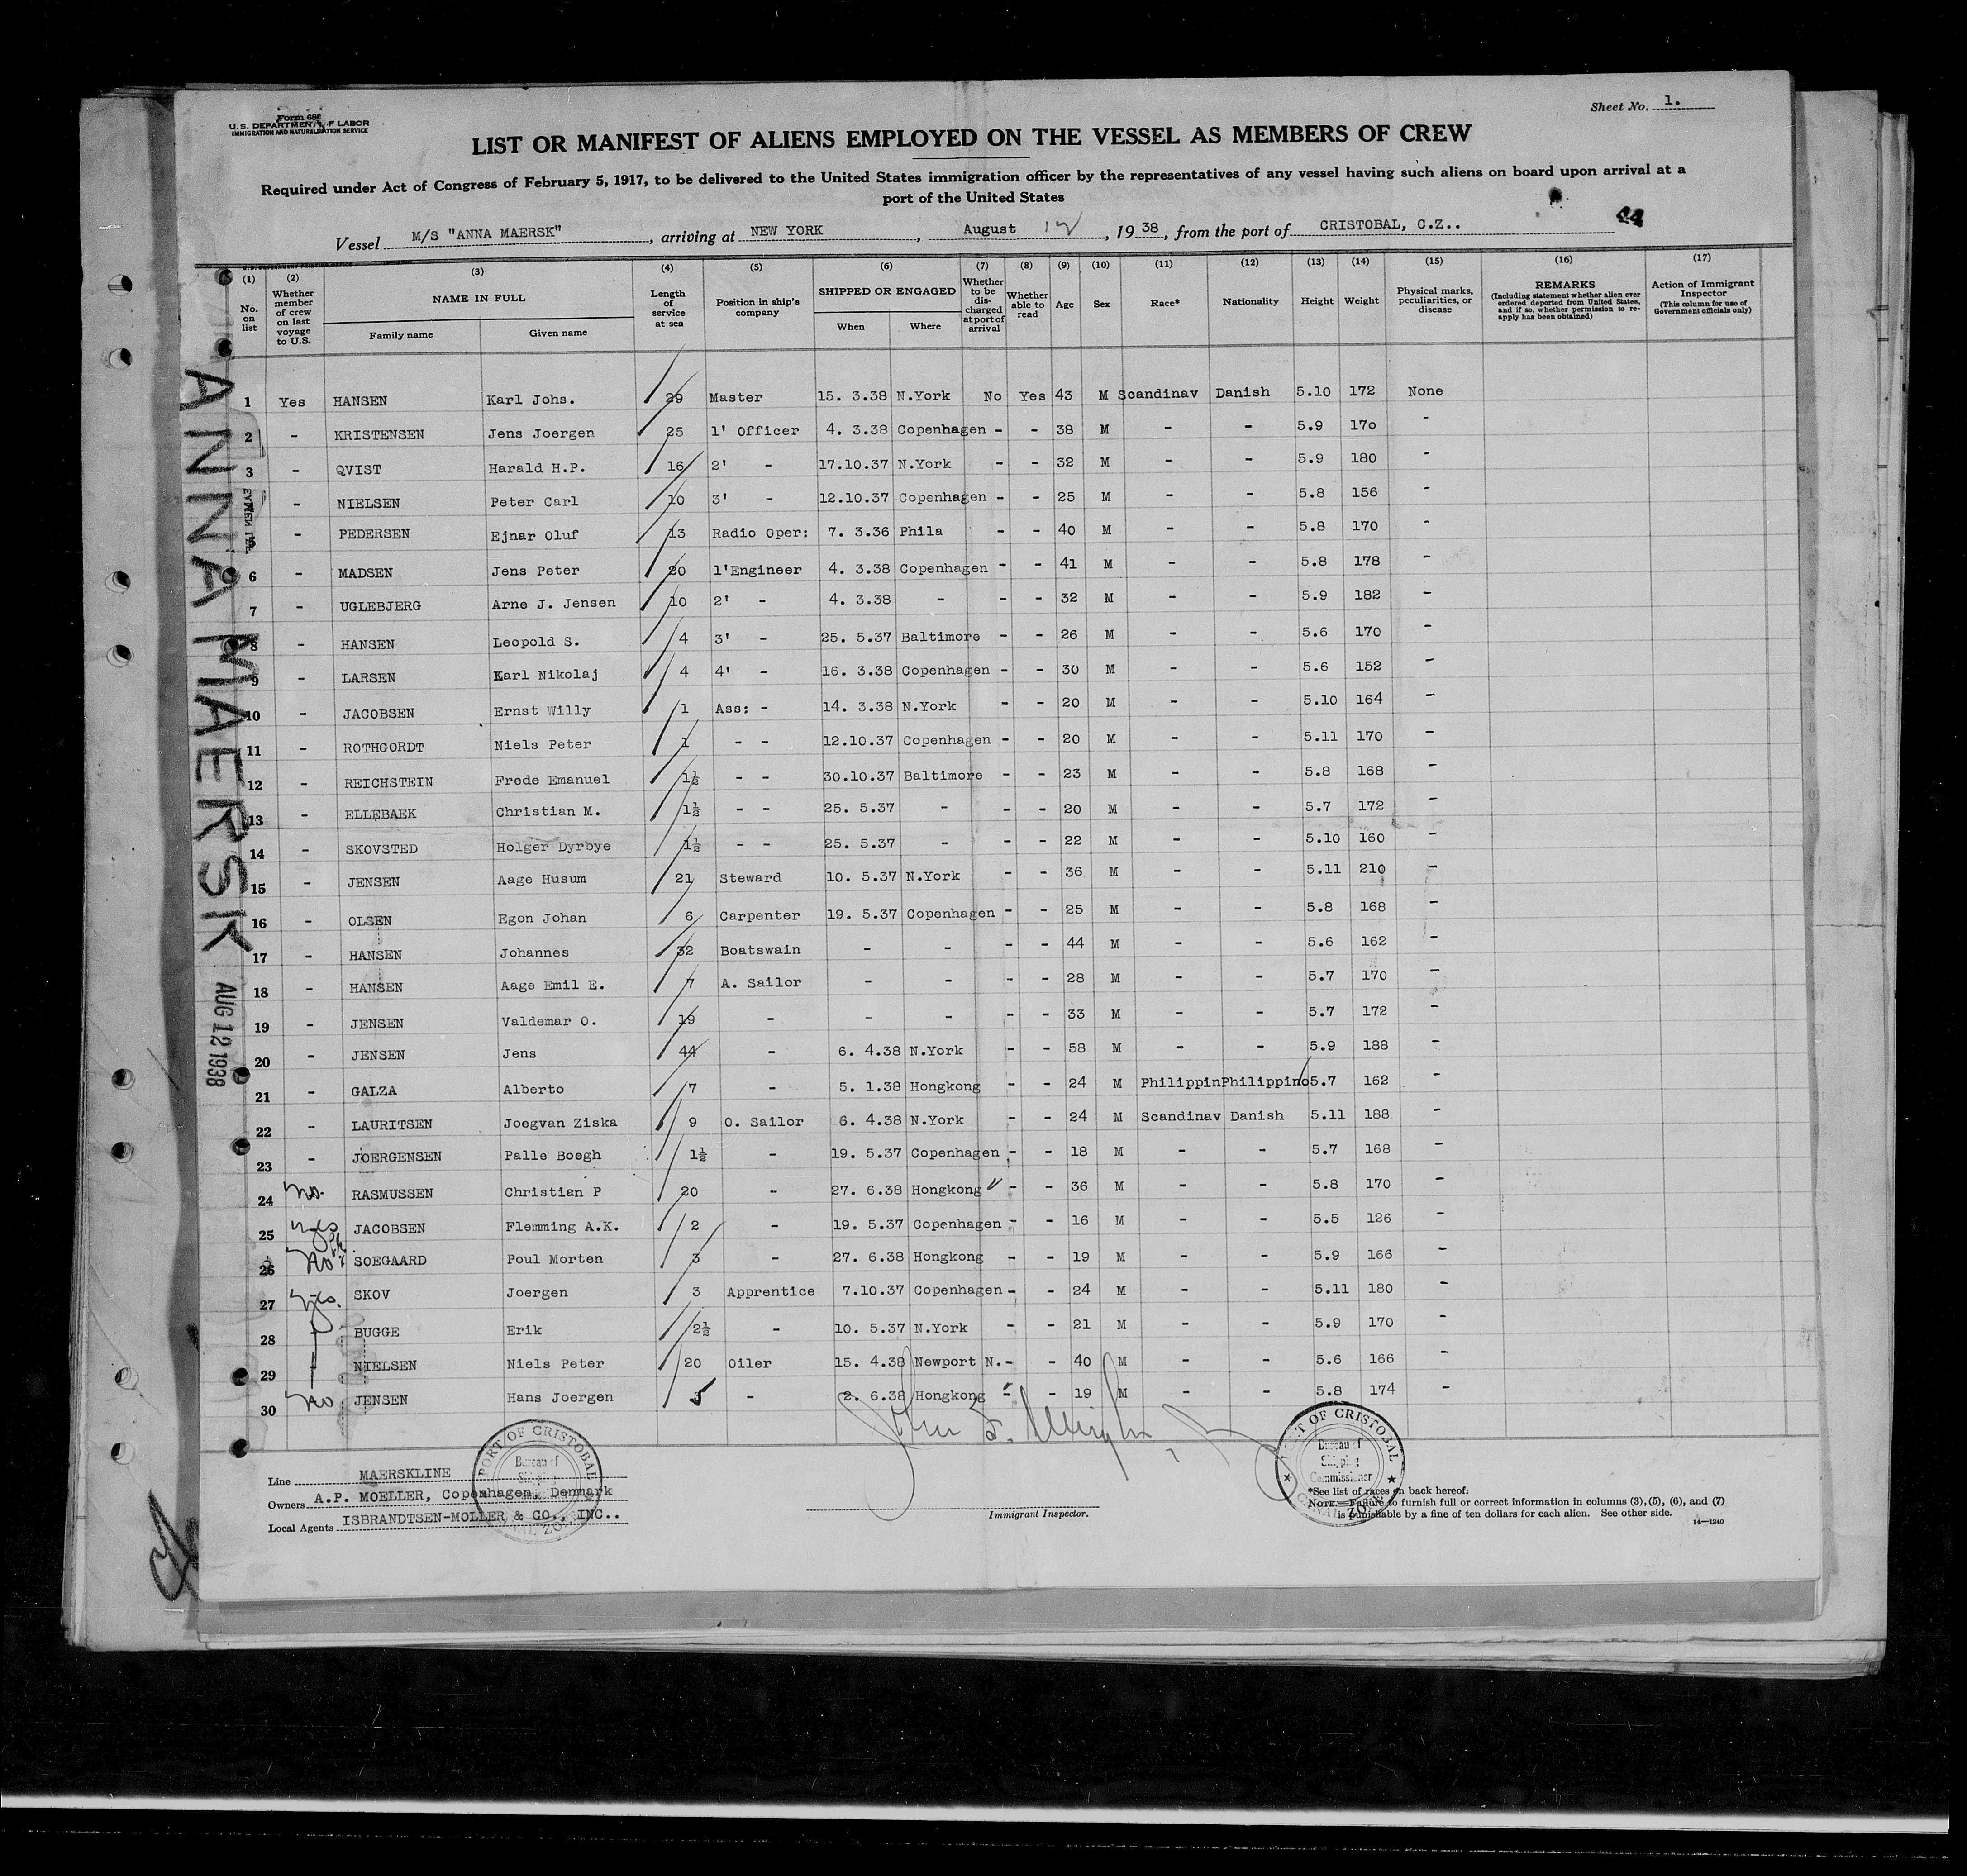 Form 680
U.S. DEPARTMENT OF LABOR
IMMIGRATION AND NATURALIZATION SERVICE
Sheet No. 1.
LIST OR MANIFEST OF ALIENS EMPLOYED ON THE VESSEL AS MEMBERS OF CREW
Required under Act of Congress of February 5, 1917, to be delivered to the United States immigration officer by the representatives of any vessel having such aliens on board upon arrival at a
port of the United States
44
Vessel M/S "ANNA MAERSK", arriving at NEW YORK, August 12, 1938, from the port of CRISTOBAL, C.Z..
(1) (2) (3) (4) (5) (6) (7) (8) (9) (10) (11) (12) (13) (14) (15) (16) (17)
No. on list
Whether member of crew on last voyage to U.S.
NAME IN FULL
Family name Given name
Length of service at sea
Position in ship's company
SHIPPED OR ENGAGED
When Where
Whether to be discharged at port of arrival
Whether able to read
Age Sex Race* Nationality Height Weight
Physical marks, peculiarities, or disease
REMARKS
(Including statement whether alien ever ordered deported from United States, and if so, whether permission to reapply has been obtained)
Action of Immigrant Inspector
(This column for use of Government officials only)
1 Yes HANSEN Karl Johs. 29 Master 15. 3.38 N.York No Yes 43 M Scandinav Danish 5.10 172 None
2 - KRISTENSEN Jens Joergen 25 1' Officer 4. 3.38 Copenhagen - - 38 M - - 5.9 170 -
3 - QVIST Harald H.P. 16 2' - 17.10.37 N.York - - 32 M - - 5.9 180 -
4 - NIELSEN Peter Carl 10 3' - 12.10.37 Copenhagen - - 25 M - - 5.8 156 -
5 - PEDERSEN Ejnar Oluf 13 Radio Oper: 7. 3.36 Phila - - 40 M - - 5.8 170 -
6 - MADSEN Jens Peter 20 1'Engineer 4. 3.38 Copenhagen - - 41 M - - 5.8 178 -
7 - UGLEBJERG Arne J. Jensen 10 2' - 4. 3.38 - - - 32 M - - 5.9 182 -
8 - HANSEN Leopold S. 4 3' - 25. 5.37 Baltimore - - 26 M - - 5.6 170 -
9 - LARSEN Karl Nikolaj 4 4' - 16. 3.38 Copenhagen - - 30 M - - 5.6 152 -
10 - JACOBSEN Ernst Willy 1 Ass: - 14. 3.38 N.York - - 20 M - - 5.10 164 -
11 - ROTHGORDT Niels Peter 1 - - 12.10.37 Copenhagen - - 20 M - - 5.11 170 -
12 - REICHSTEIN Frede Emanuel 1½ - - 30.10.37 Baltimore - - 23 M - - 5.8 168 -
13 - ELLEBAEK Christian M. 1½ - - 25. 5.37 - - - 20 M - - 5.7 172 -
14 - SKOVSTED Holger Dyrbye 1½ - - 25. 5.37 - - - 22 M - - 5.10 160 -
15 - JENSEN Aage Husum 21 Steward 10. 5.37 N.York - - 36 M - - 5.11 210 -
16 - OLSEN Egon Johan 6 Carpenter 19. 5.37 Copenhagen - - 25 M - - 5.8 168 -
17 - HANSEN Johannes 32 Boatswain - - - - 44 M - - 5.6 162 -
18 - HANSEN Aage Emil E. 7 A. Sailor - - - - 28 M - - 5.7 170 -
19 - JENSEN Valdemar O. 19 - - - - - 33 M - - 5.7 172 -
20 - JENSEN Jens 44 - 6. 4.38 N.York - - 58 M - - 5.9 188 -
21 - GALZA Alberto 7 - 5. 1.38 Hongkong - - 24 M Philippin Philippino 5.7 162 -
22 - LAURITSEN Joegvan Ziska 9 O. Sailor 6. 4.38 N.York - - 24 M Scandinav Danish 5.11 188 -
23 - JOERGENSEN Palle Boegh 1½ - 19. 5.37 Copenhagen - - 18 M - - 5.7 168 -
24 No. RASMUSSEN Christian P 20 - 27. 6.38 Hongkong - - 36 M - - 5.8 170 -
25 Yes JACOBSEN Flemming A.K. 2 - 19. 5.37 Copenhagen - - 16 M - - 5.5 126 -
26 No SOEGAARD Poul Morten 3 - 27. 6.38 Hongkong - - 19 M - - 5.9 166 -
27 Yes. SKOV Joergen 3 Apprentice 7.10.37 Copenhagen - - 24 M - - 5.11 180 -
28 - BUGGE Erik 2½ - 10. 5.37 N.York - - 21 M - - 5.9 170 -
29 - NIELSEN Niels Peter 20 Oiler 15. 4.38 Newport N. - - 40 M - - 5.6 166 -
30 No JENSEN Hans Joergen 3 - 2. 6.38 Hongkong - - 19 M - - 5.8 174 -
ANNA MAERSK
AUG 12 1938
Line MAERSKLINE
Owners A.P. MOELLER, Copenhagen, Denmark
Local Agents ISBRANDTSEN-MOLLER & CO., INC..
PORT OF CRISTOBAL
Bureau of
Shipping
CANAL ZONE
Immigrant Inspector.
PORT OF CRISTOBAL
Bureau of
Shipping
Commissioner
CANAL ZONE
*See list of races on back hereof.
NOTE.—Failure to furnish full or correct information in columns (3), (5), (6), and (7)
is punishable by a fine of ten dollars for each alien. See other side.
14—1240